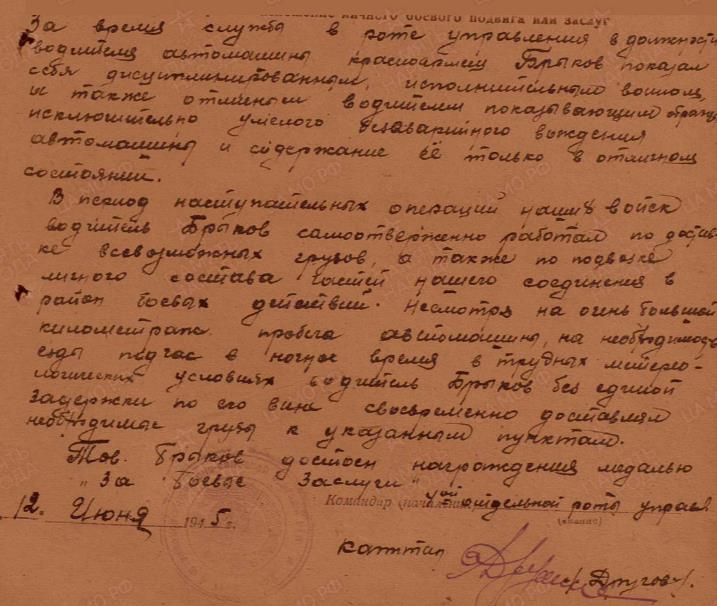 изложение личного боевого подвига или заслуг
За время службы в роте управления в должности
водителя автомашины красноармеец Брыков показал
себя дисциплинированным, исполнительным воином,
и также отличным водителем показывающим образцы
исключительно умелого безаварийного вождения
автомашины и содержание её только в отличном
состоянии.
В период наступательных операций наших войск
водитель Брыков самоотверженно работал по достав-
ке всевозможных грузов, а также по подвозке
личного состава частей нашего соединения в
район боевых действий. Несмотря на очень большой
километраж пробега автомашины, на необходимость
езды подчас в ночное время в трудных метеоро-
логических условиях водитель Брыков без единой
задержки по его вине своевременно доставлял
необходимые грузы к указанным пунктам.
Тов. Брыков достоен награждения медалью
"За Боевые Заслуги"
Командир (начальник) отдельной роты управл.
12. Июня 1945 г.
(звание)
капитан
/Другов/